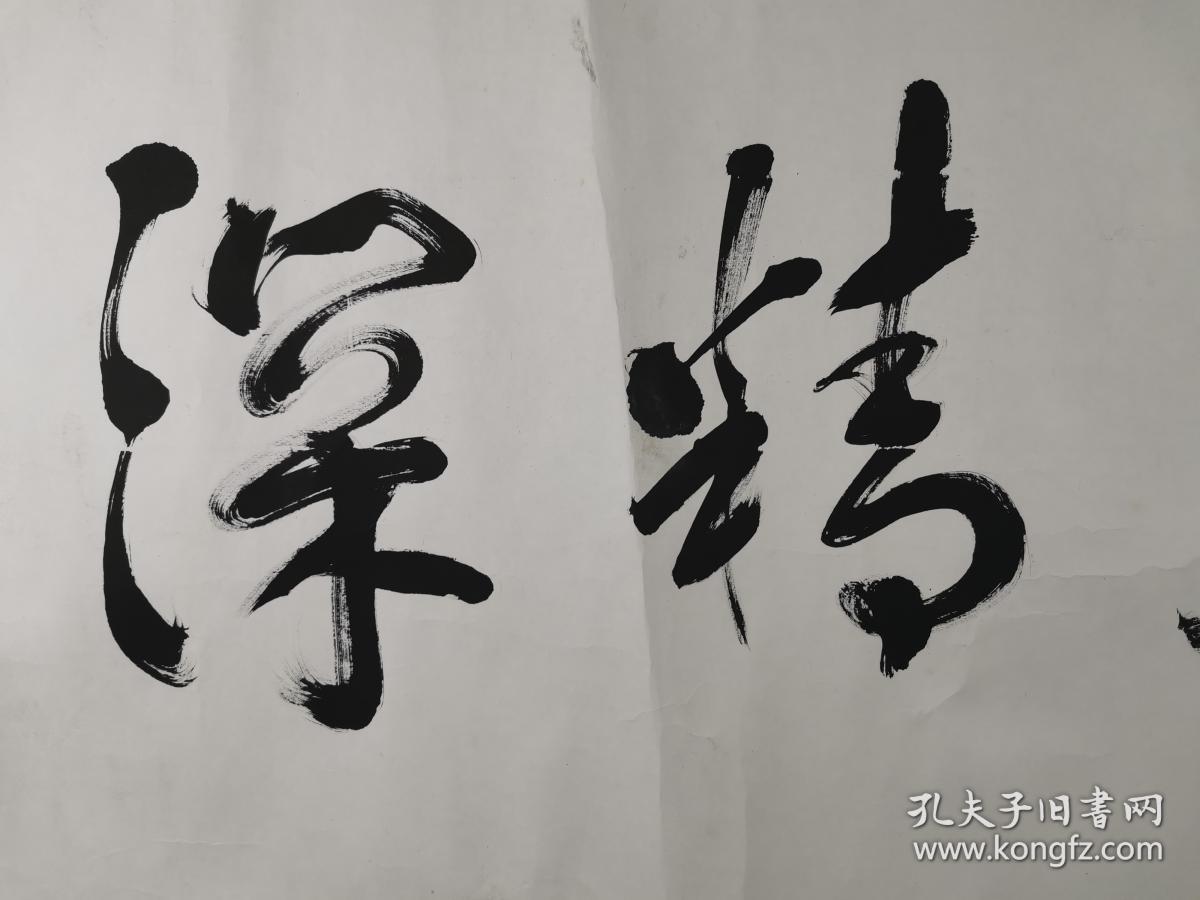 精深
孔夫子旧書网
www.kongfz.com